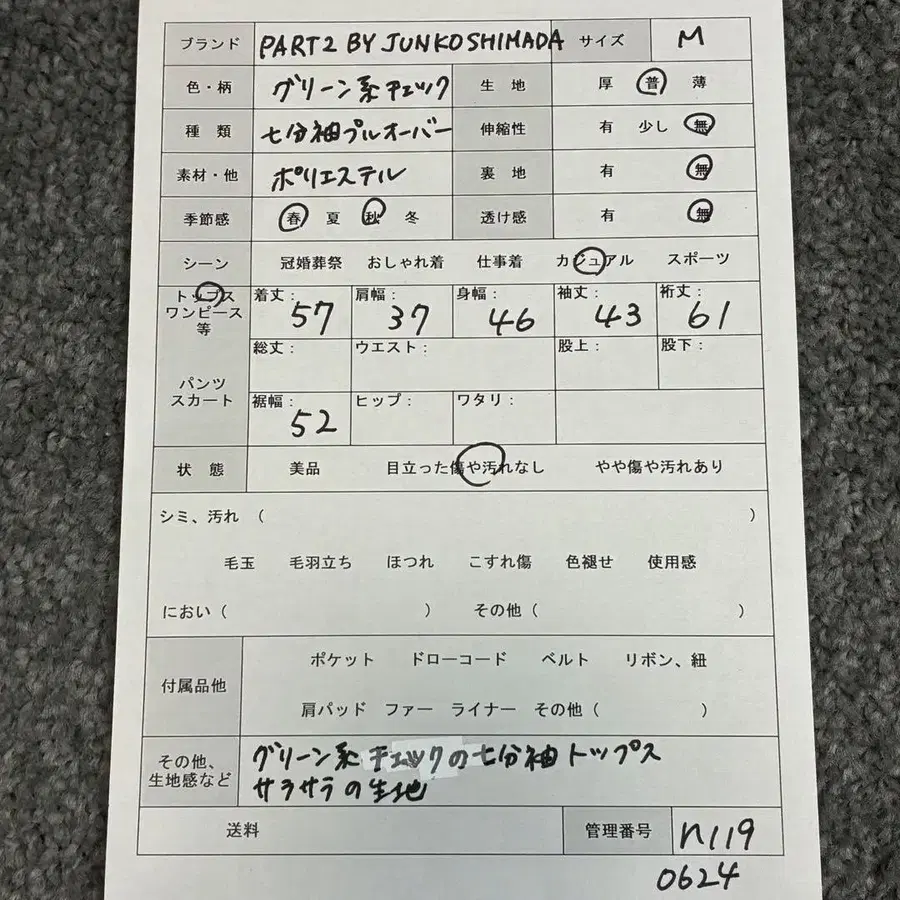 ブランド PART2 BY JUNKO SHIMADA サイズ M
色・柄 グリーン系チェック 生地 厚 普 薄
種類 七分袖プルオーバー 伸縮性 有 少し 無
素材・他 ポリエステル 裏地 有 無
季節感 春 夏 秋 冬 透け感 有 無
シーン 冠婚葬祭 おしゃれ着 仕事着 カジュアル スポーツ
トップス ワンピース 等 着丈：57 肩幅：37 身幅：46 袖丈：43 裄丈：61
パンツ スカート 総丈： ウエスト： 股上： 股下：
裾幅：52 ヒップ： ワタリ：
状態 美品 目立った傷や汚れなし やや傷や汚れあり
シミ、汚れ （ ）
毛玉 毛羽立ち ほつれ こすれ傷 色褪せ 使用感
におい（ ） その他（ ）
付属品他 ポケット ドローコード ベルト リボン、紐
肩パッド ファー ライナー その他（ ）
その他、 グリーン系チェックの七分袖トップス
生地感など サラサラの生地
送料 管理番号 n119
0624